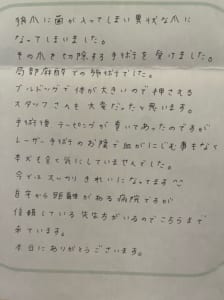 狼爪に菌が入ってしまい異状な爪に
なってしまいました。
その爪を切除する手術を受けました。
局部麻酔での手術でした。
ブルドッグで体が大きいので押さえる
スタッフさんも大変だったと思います。
手術後テーピングが巻いてあったのですが
レーザー手術のお陰で血がにじむ事もなく
本犬も全く気にしていませんでした。
今ではスッカリきれいになってます^^
自宅から距離がある病院ですが
信頼している先生方がいるのでこちらまで
来ています。
本当にありがとうございます。